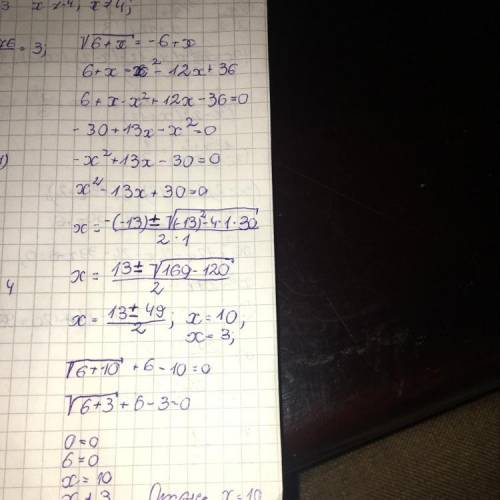 3 x ≥ -4, x ≥ 4;
= 3;
√6+x = -6+x
6+x = x² - 12x + 36
6+x-x²+12x-36=0
-30+13x-x²=0
-x²+13x-30=0
x²-13x+30=0
x = -(-13)±√(-13)²-4·1·30 / 2·1
x = 13±√169-120 / 2
4
x = 13±49 / 2; x=10,
x=3;
√6+10 + 6-10=0
√6+3 + 6-3=0
0=0
6=0
x=10
x≠3 x=10